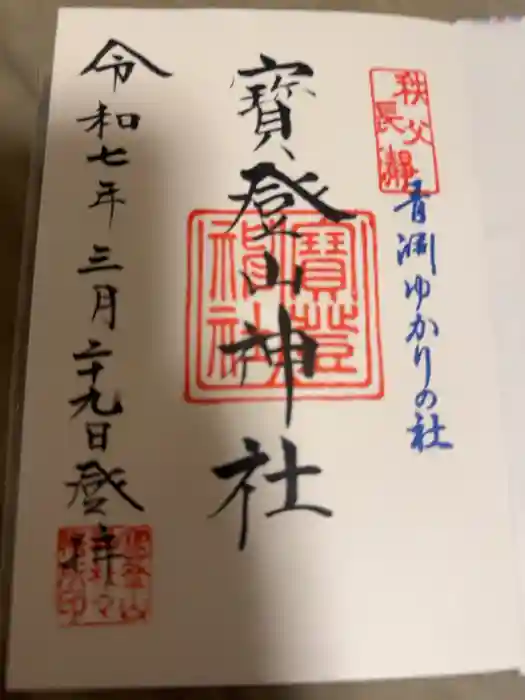 秩父
長瀞
青淵ゆかりの社
寳登山神社
寳登
山神社
令和七年三月二十九日登拝